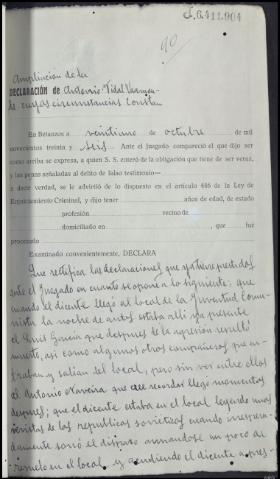 J.6.411.904
90
Ampliación de la
DECLARACIÓN de Antonio Vidal Varmon-
de cuyas circunstancias constan
En Betanzos a veintiuno de octubre de mil
novecientos treinta y seis.- Ante el Juzgado compareció el que dijo ser
como arriba se expresa, a quien S. S. enteró de la obligación que tiene de ser veraz,
y las penas señaladas al delito de falso testimonio—
a decir verdad, se le advirtió de lo dispuesto en el artículo 446 de la Ley de
Enjuiciamiento Criminal, y dijo tener años de edad, de estado
profesión vecino de
domiciliado en , que fué
procesado
Examinado convenientemente, DECLARA
Que rectifica las declaraciones que ya tiene prestadas
ante el Juzgado en cuanto se opone a lo siguiente: que
cuando el dicente llegó al local de la Juventud Comu-
nista la noche de autos estaba allí ya presente
el Luis García que después de la agresión resultó
muerto, así como algunos otros compañeros que en-
traban y salían del local, pero sin ver entre ellos
al Antonio Naveira que cree recordar llegó momentos
después; que el dicente estaba en el local leyendo unas
revistas de las republicas sovieticas cuando inespera-
damente sonó el disparo armandose un poco de
revuelo en el local y acudiendo el dicente a pres-